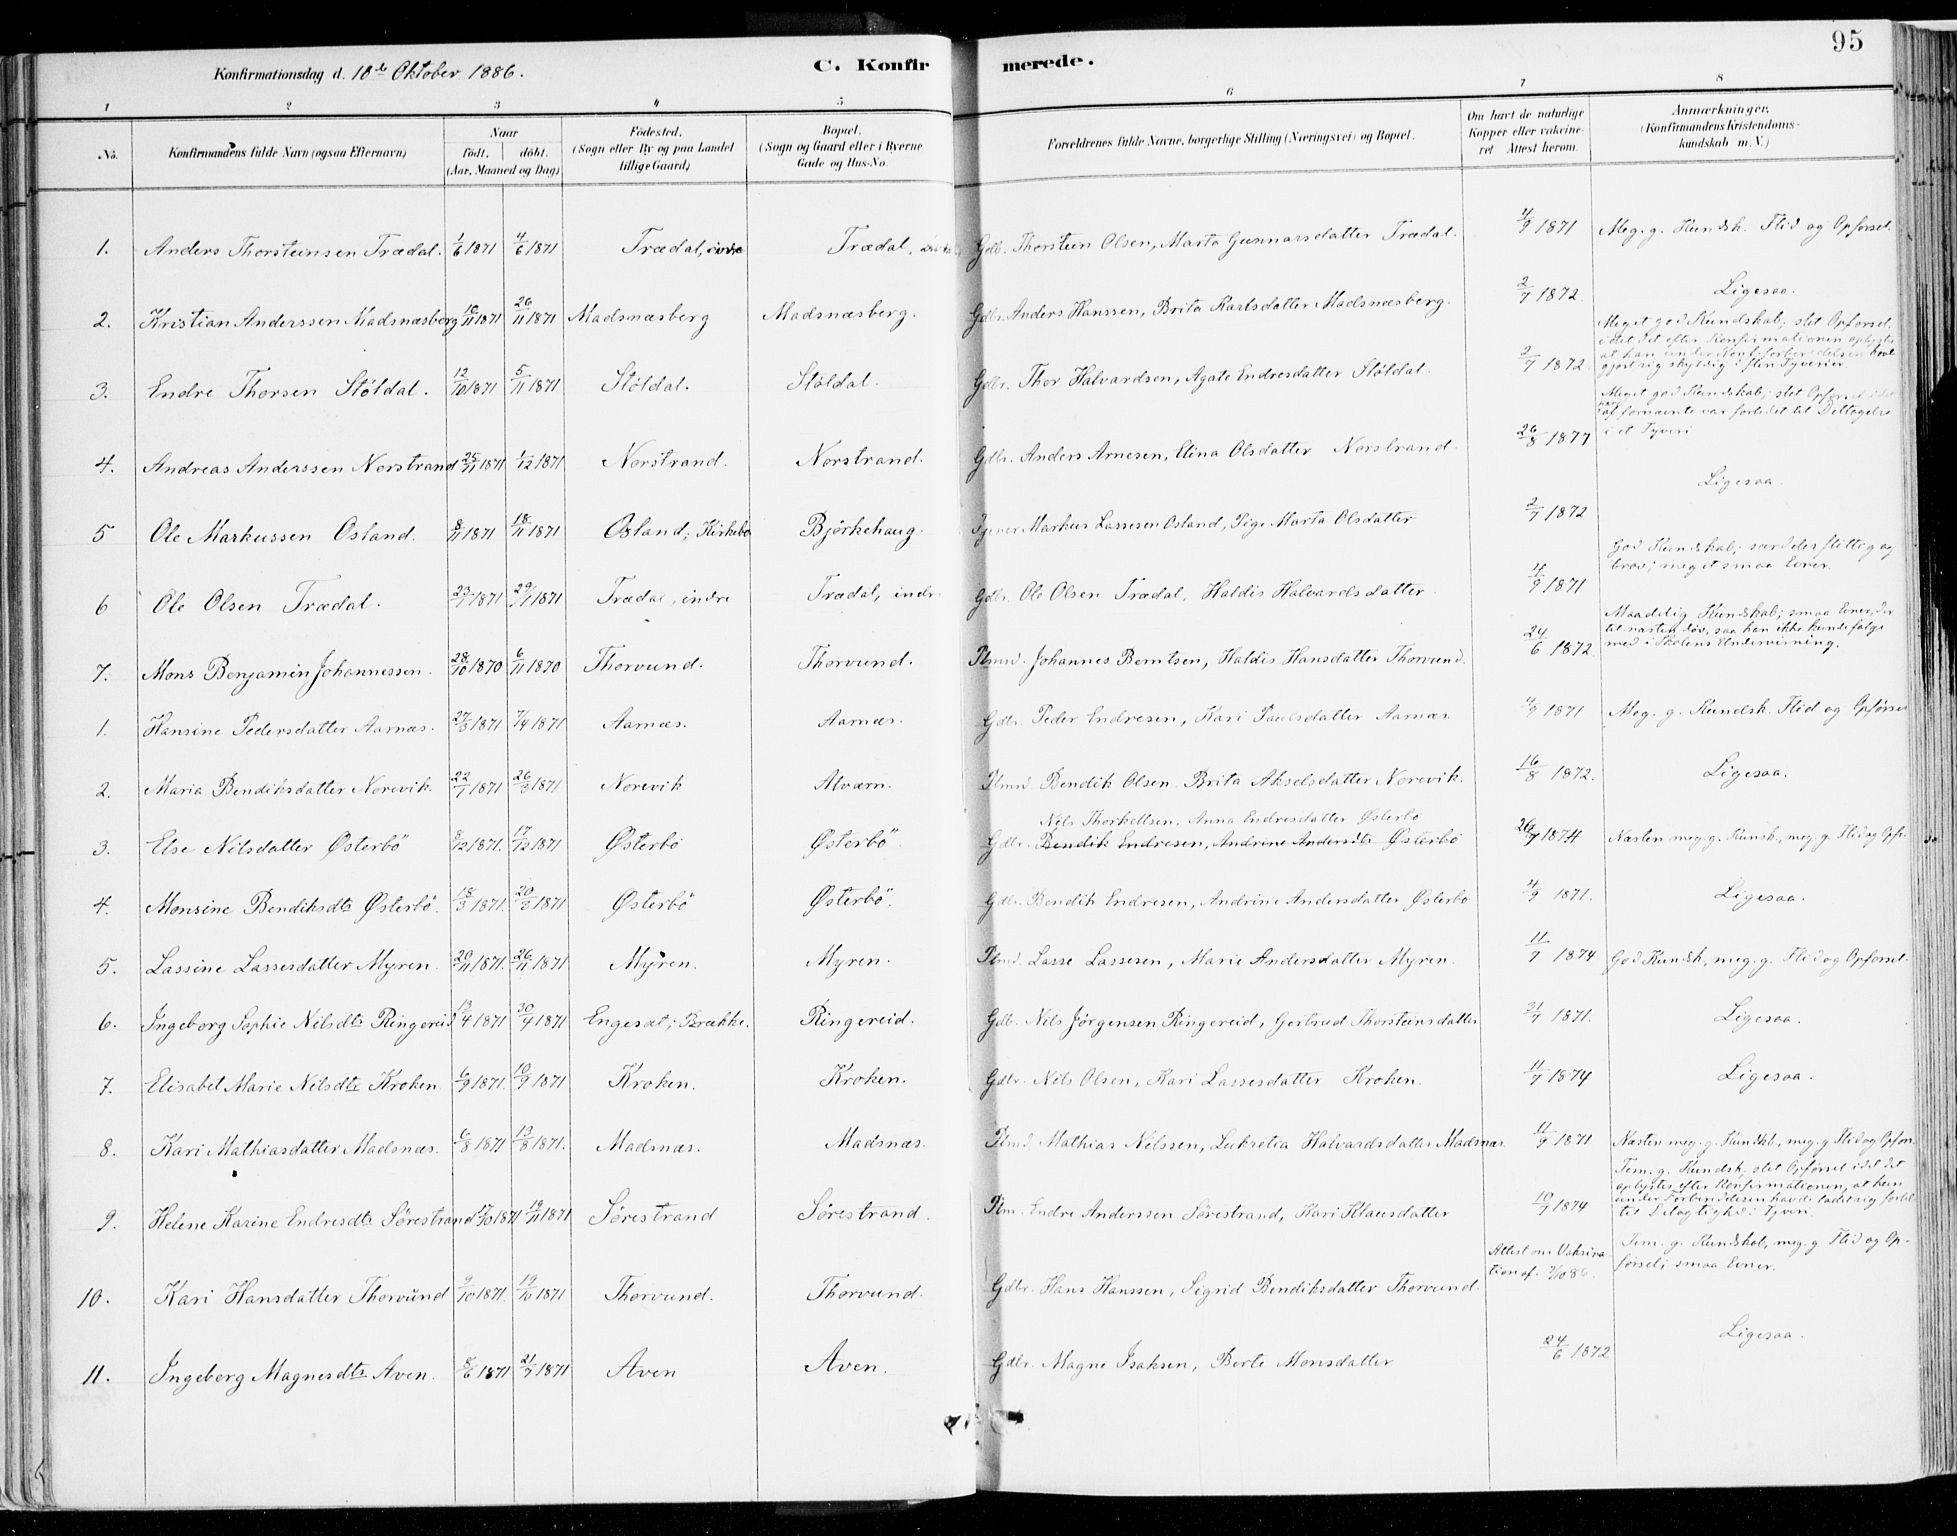 95
Konfirmationsdag d. 10de Oktober 1886. C. Konfirmerede.
1 2 3 4 5 6 7 8
No. Konfirmandens fulde Navn (ogsaa Efternavn) Naar født. døbt. (Aar, Maaned og Dag) Fødested. (Sogn eller By og paa Landet tillige Gaard) Bopæl. (Sogn og Gaard eller i Byerne Gade og Hus-No. Forældrenes fulde Navne, borgerlige Stilling (Næringsvei) og Bopæl. Om havt de naturlige Kopper eller vakcineret Attest herom. Anmærkninger. (Konfirmandens Kristendomskundskab m. V.)
1. Anders Thorsteinsen Trædal. 1/6 1871 4/6 1871 Trædal, indre Trædal, Gdb. Thorstein Olsen, Marta Gunnarsdatter Trædal. 4/9 1871 Meg. g. Kundsk. Flid og Opførsel.
2. Kristian Anderssen Madsnæsberg 16/11 1871 26/11 1871 Madsnæsberg Madsnæsberg. Gdbr. Anders Hanssen, Brita Larsdatter Madsnæsberg. 2/7 1872. Ligesaa.
3. Endre Thorsen Støldal. 12/10 1871 5/11 1871 Støldal. Støldal. Gdbr. Thor Halvardsen, Agate Endresdatter Støldal. 2/7 1872. Meget god Kundskab; slet Opførsel, idet det efter Konfirmationen oplystes at han under Konf.forberedelsen havde gjort sig skyldig i flere Tyverier.
4. Andreas Anderssen Norstrand 25/11 1871 1/12 1871 Norstrand. Norstrand. Gdbr. Anders Arnesen, Elina Olsdatter Norstrand. 26/8 1877 Meget god Kundskab; slet Opførsel idet han af fornævnte var forledet til Deltagelse i et Tyveri
5 Ole Markussen Osland. 8/11 1871 18/11 1871 Osland; Kirkebø Bjørkehaug. Tjener Markus Lassesen Osland, Pige Marta Olsdatter 2/7 1872 Ligesaa.
6 Ole Olsen Trædal. 23/7 1871 29/7 1871 Trædal, indre Trædal, indr. Gdbr. Ole Olsen Trædal, Haldis Halvardsdatter. 4/9 1871 God Kundskab; særdeles flittig og brav; meget smaa Evner.
7. Mons Benjamin Johannessen. 28/10 1870 6/11 1870 Thorvund. Thorvund. Plmd. Johannes Berntsen, Haldis Hansdatter Thorvund. 24/6 1872. Maadelig Kundskab; smaa Evner, dertil næsten døv, saa han ikke kunde følge med i Skolens Undervisning.
1. Hansine Pedersdatter Aarnæs. 27/3 1871 7/4 1871 Aarnæs. Aarnæs. Gdbr. Peder Endresen, Kari Paulsdatter Aarnæs. 4/9 1871 Meg. g. Kundsk. Flid og Opførsel
2. Maria Bendiksdatter Norevik. 22/7 1871 26/3 1871 Norevik Alværn. Plmd. Bendik Olsen. Brita Akselsdatter Norevik. 16/8 1872. Ligesaa.
Nils Thorkeltsen, Anna Endresdatter Østerbø
3. Else Nilsdatter Østerbö 8/12 1871. 17/12 1871 Østerbö Østerbö. Gdbr. Bendik Endresen, Andrine Andersdtr Østerbö 26/7 1874 Næsten meg. g. Kunsk, meg. g. Flid og Opfs.
4. Monsine Bendiksdtr Østerbö. 18/3 1871. 20/3 1871 Østerbö Østerbö. Gdbr. Bendik Endresen, Andrine Andersdatter Østerbö 4/9 1871. Ligesaa.
5. Lassine Lassesdatter Myren. 20/11 1871. 26/11 1871 Myren. Myren. Plmd. Lasse Lassesen, Marie Andersdatter Myren. 11/7 1874 God Kundsk, meg. g. Flid og Opførsel.
6. Ingeborg Sophie Nilsdtr Ringereid 13/4 1871 30/4 1871 Engesæt; Brække. Ringereid. Gdb. Nils Jørgensen Ringereid, Gertrud Thorsteinsdatter 31/7 1871. Ligesaa.
7. Elisabet Marie Nilsdtr Kroken 6/9 1871. 10/9 1871 Kroken. Kroken. Gdbr. Nils Olsen, Kari Lassesdatter Kroken. 11/7 1874 Ligesaa.
8. Kari Mathiasdatter Madsnæs. 6/8 1871 13/8 1871. Madsnæs. Madsnæs. Plmd. Mathias Nilssen, Lukretia Halvardsdatter Madsnæs. 11/9 1871 Næsten meg. g. Kundsk., meg. g Flid og Opførs.
9. Helene Karine Endresdtr Sørestrand 17/10 1871 19/11 1871 Sørestrand Sørestrand. Plm. Endre Anderssen Sørestrand, Kari Klausdatter 10/7 1874 Tem. g. Kundsk. slet Opførsel idet det oplystes efter Konfirmationen, at hun under Forberedelsen havde ladet sig forlede til Delagtighed i Tyveri.
10. Kari Hansdatter Thorvund 9/10 1871. 19/10 1871 Thorvund. Thorvund. Gdbr. Hans Hanssen, Sigrid Bendiksdatter Thorvund. Attest om Vakcination af 7/10 86. Tem. g. Kundskab, meg. g Flid og Opførsel; smaa Evner.
11. Ingeborg Magnesdtr Aven. 8/6 1871 21/7 1871 Aven Aven. Gdbr. Magne Isaksen, Berte Monsdatter 24/6 1872 Ligesaa.